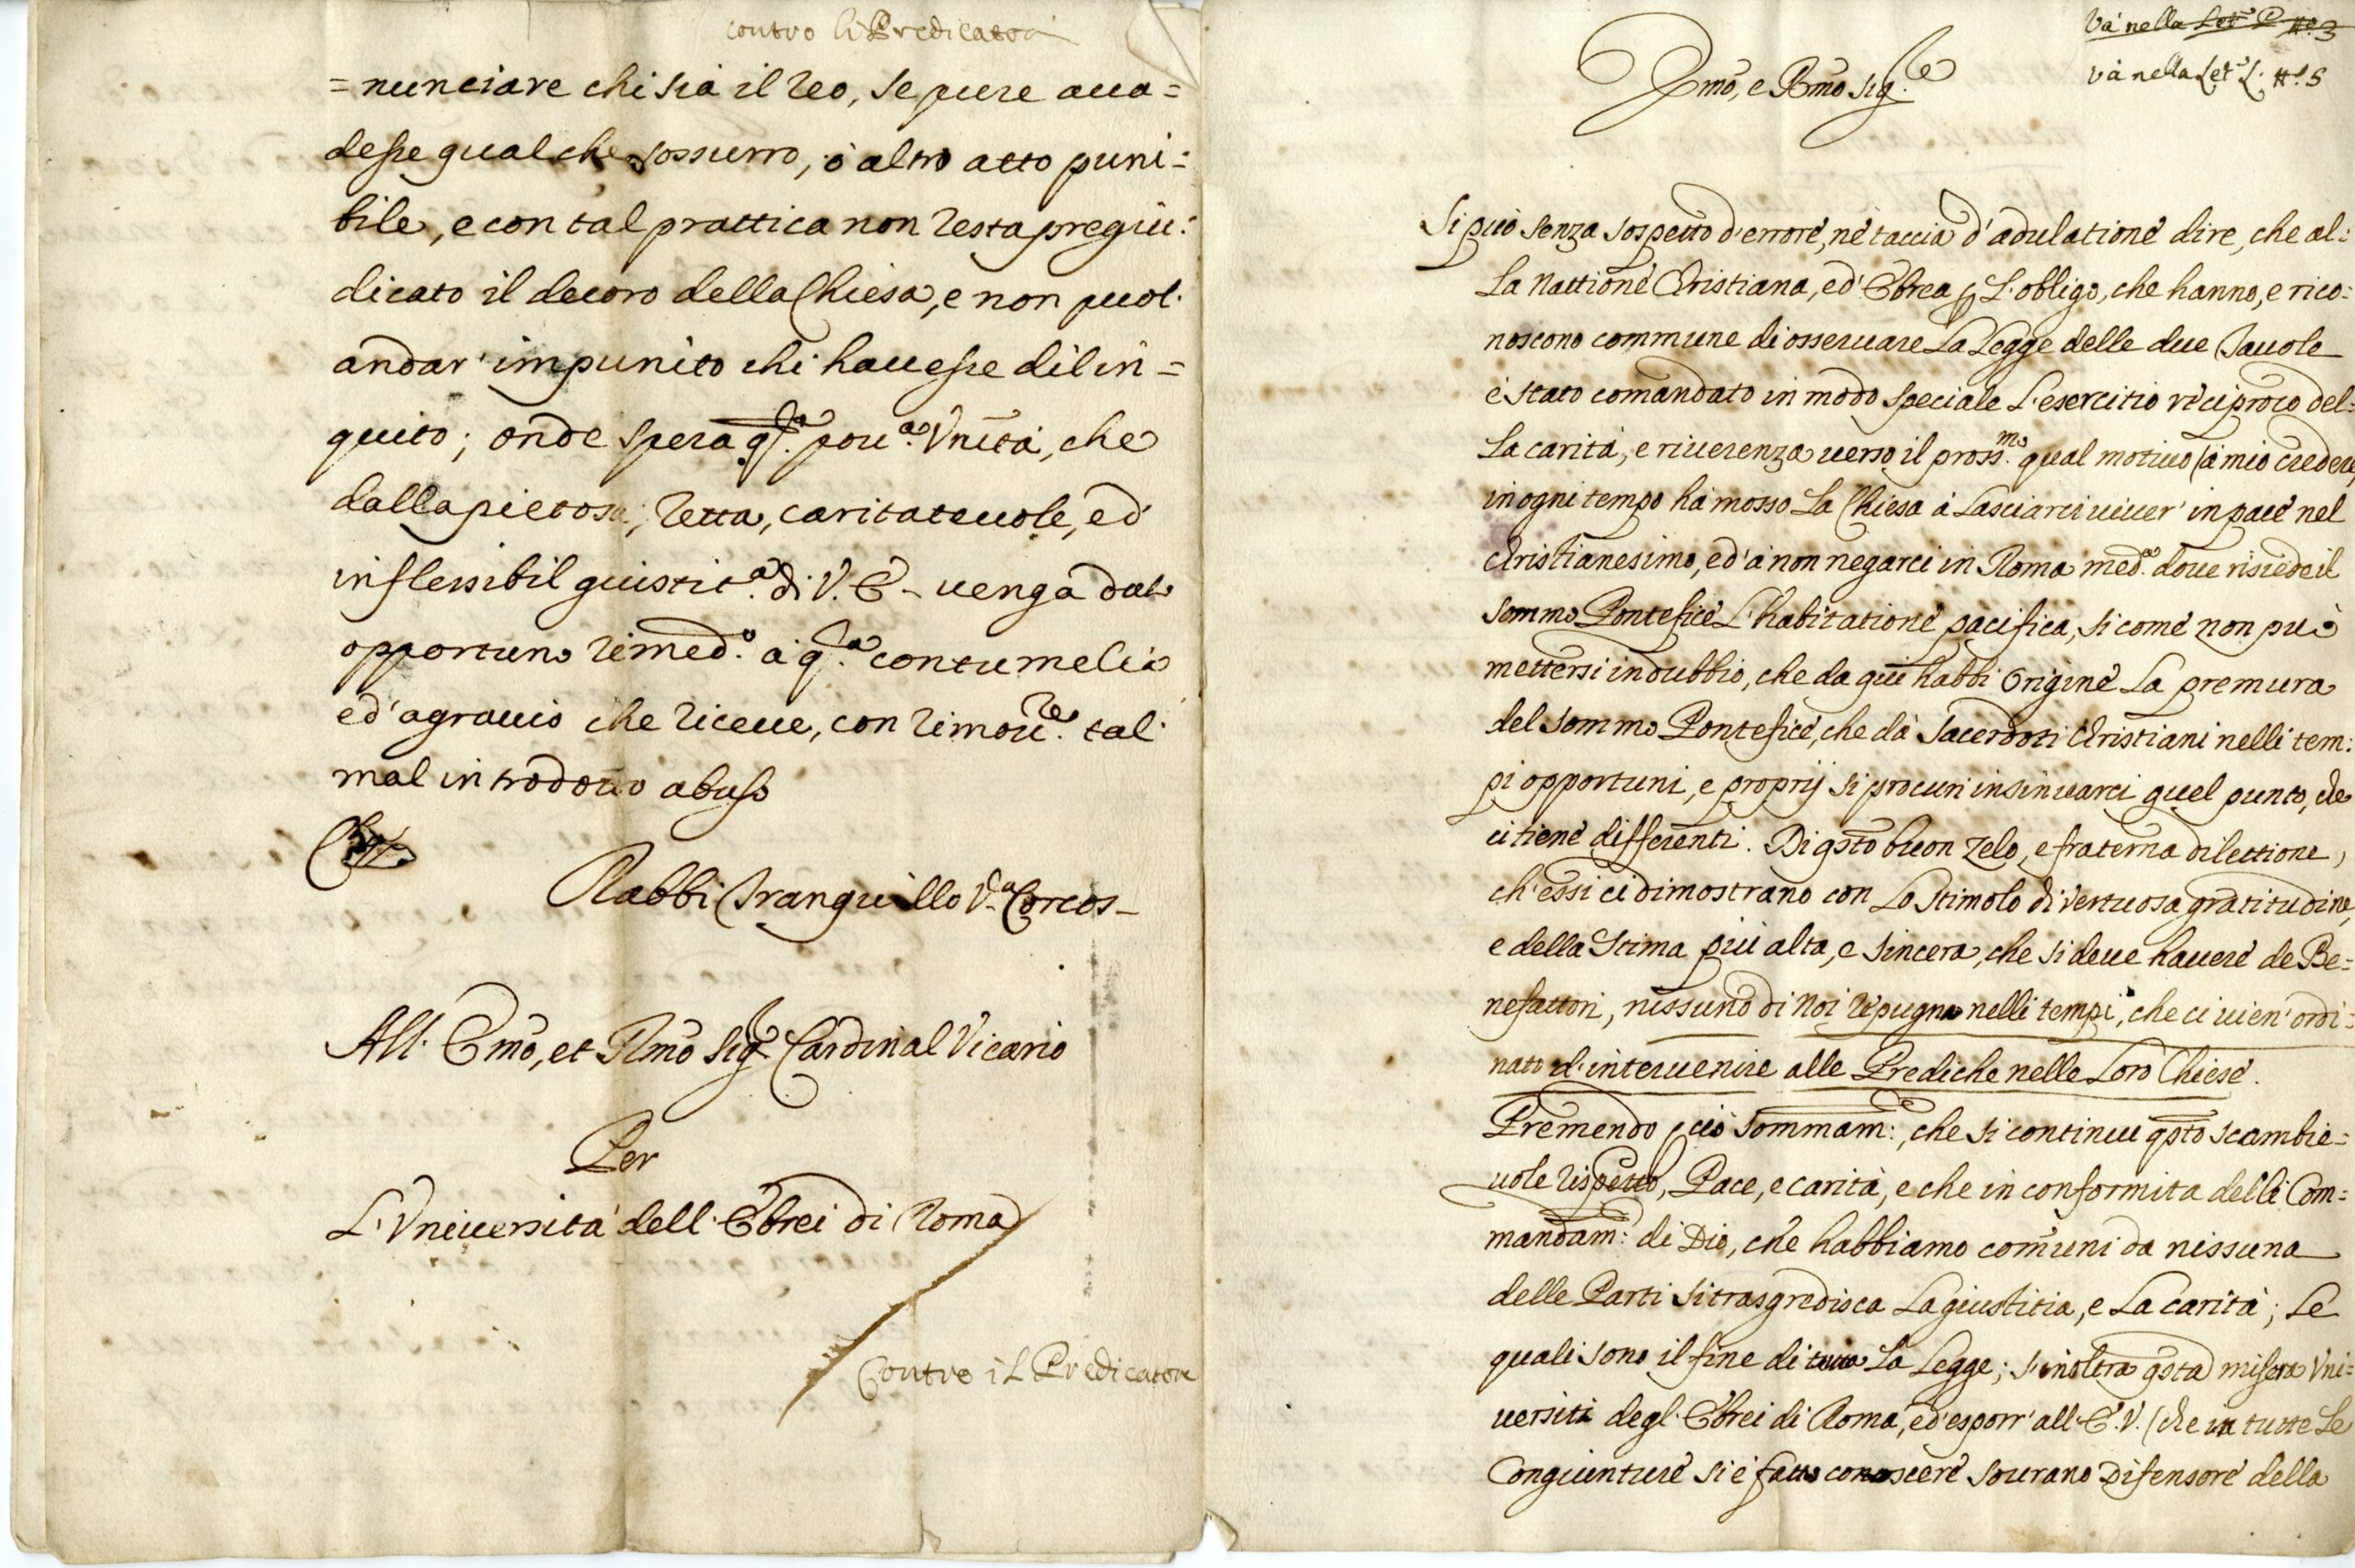 contro li Predicatori
= nunciare chi sia il reo, se pure acca =
desse qual che sossurro, ò altro atto puni =
bile, e con tal prattica non resta pregiu:
dicato il decoro della Chiesa, e non puol'
andar' impunito chi hauesse dilin =
quito; onde spera q.sta pou.a Vnità, che
dalla pietosa, retta, caritateuole, ed'
inflessibil giustit.a di V. E - uenga dato
opportuno rimed.o à q.sta contumelia
ed' agrauio che riceue, con rimou.re tal'
mal introdotto abuso
Rabbi Tranquillo V.a Corcos -
All' Emo, et Rmo Sig.re Cardinal Vicario
Per
L'Vniuersità dell' Ebrei di Roma
Contro il Predicatore
Và nella Let.a P n.o 3
và nella Let.a L. n.o 5
Emo, e Rmo Sig.re
Si può senza sospetto d'errore, nè taccia d'adulatione dire, che al:
la Nattione Christiana, ed' Ebrea p L'obligo, che hanno, e rico:
noscono commune di osseruare La Legge delle due Tauole
è stato comandato in modo speciale L'esercitio reciproco del=
la carità, e riuerenza uerso il pross.mo qual motiuo (à mio credere
in ogni tempo hà mosso La Chiesa à Lasciarci uiuer' in pace nel
Christianesimo, ed'à non negarci in Roma med.a doue risiede il
sommo Pontefice L'habitatione pacifica, si come non può
mettersi in dubbio, che da qui habbi Origine La premura
del sommo Pontefice, che dà Sacerdoti Christiani nelli tem:
pi opportuni, e proprij si procuri insinuarci quel punto, che
ci tiene differenti. Di qsto buon zelo, e fraterna dilettione,
ch'essi ci dimostrano con Lo Stimolo di vertuosa gratitudine,
e della Stima più alta, e sincera, che si deue hauere de Be=
nefattori, nissuno di Noi repugna nelli tempi, che ci uien' ordi=
nato d'interuenire alle Prediche nelle Loro Chiese.
Premendo p ciò sommam:, che si continui qsto scambie=
uole rispetto, Pace, e carità, e che in conformita delli Com=
mandam: di Dio, che habbiamo comuni da nissuna
delle Parti si trasgredisca La giustitia, e La carità; Le
quali sono il fine di tutta La Legge; s'inoltra qsta misera Vni=
uersità degl' Ebrei di Roma, ed'esporr' all' E. V. (che in tutte Le
Congiunture si è fatto conoscere sourano Difensore della